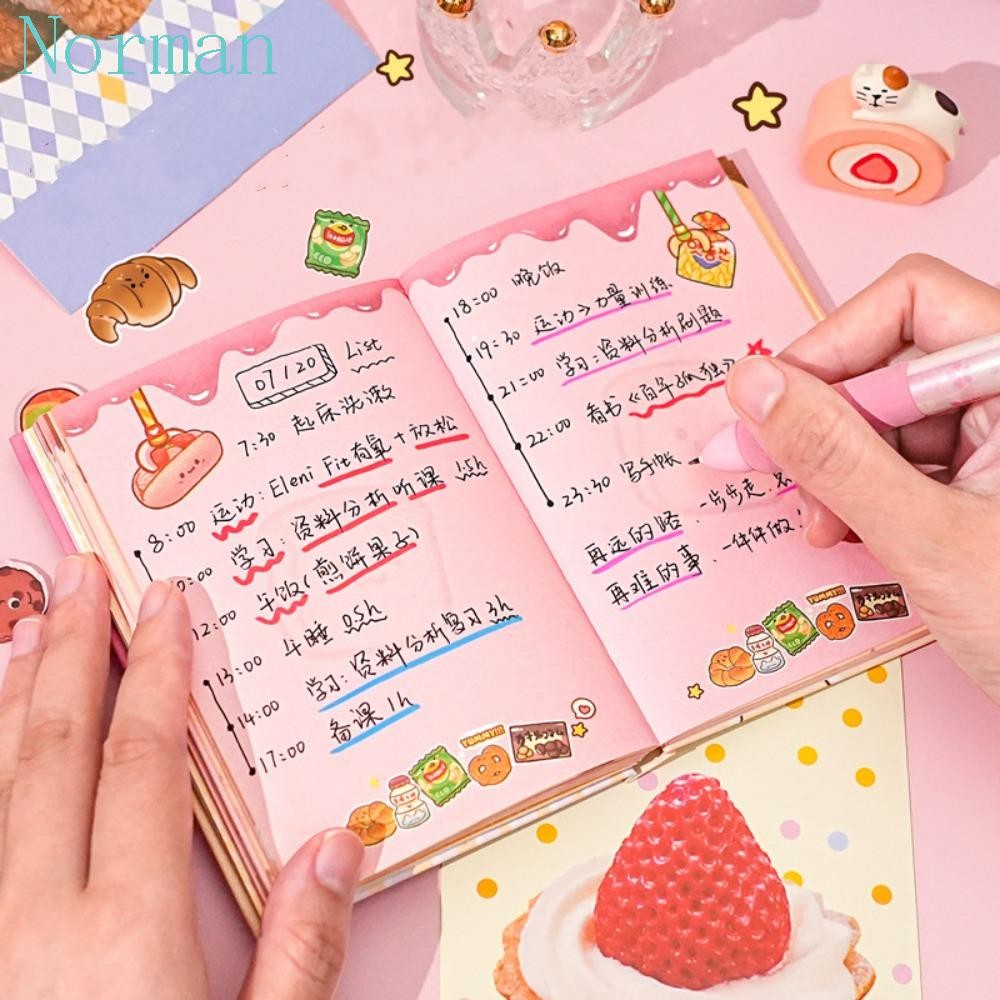 Norman
07/20 List
7:30 起床洗漱
8:00 运动: Eleni Fit有氧+放松
学习: 资料分析听课 1.5h
12:00 午饭(煎饼果子)
13:00 午睡 0.5h
14:00 学习: 资料分析复习 3h
17:00 备课 1h
YUMMY!!!
18:00 晚饭
19:30 运动>力量训练
21:00 学习: 资料分析刷题
22:00 看书《百年孤独》
23:30 写手帐
再远的路. 一步步走.
再难的事. 一件件做!
YUMMY!!!